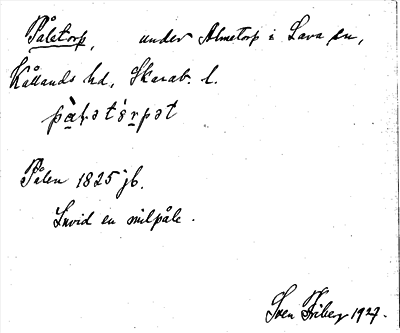 Påletorp, under Almetorp i Lava sn,
Kållands hd, Skarab. l.
pàɫətórpət
Pålen 1825 jb.
Invid en milpåle.
Sven Friberg 1927.